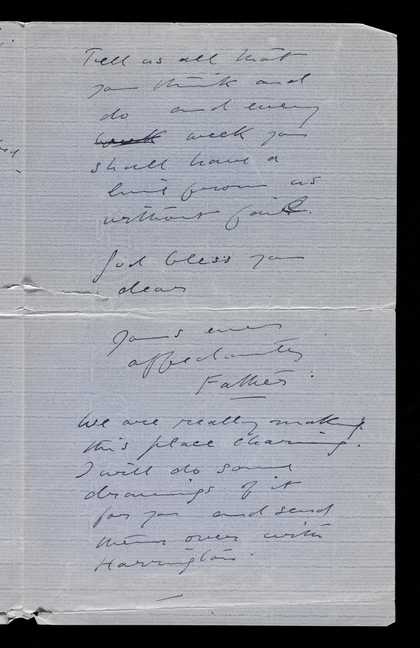 Tell us all that
you think and
do and every
week you
shall have a
line from us
without fail.
God bless you
dear
Yours ever
affectionately
Father.
We are really making
this place charming.
I will do some
drawings of it
for you and send
them over with
Harrington.